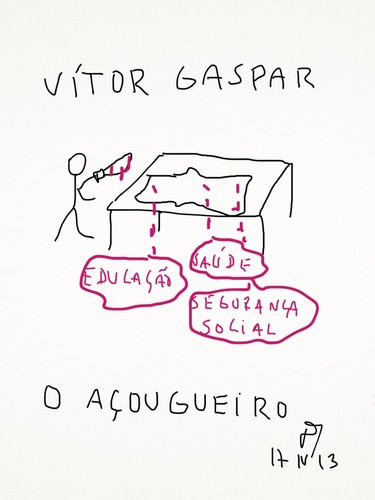 VÍTOR GASPAR
EDUCAÇÃO
SAÚDE
SEGURANÇA
SOCIAL
O AÇOUGUEIRO
17 IV 13